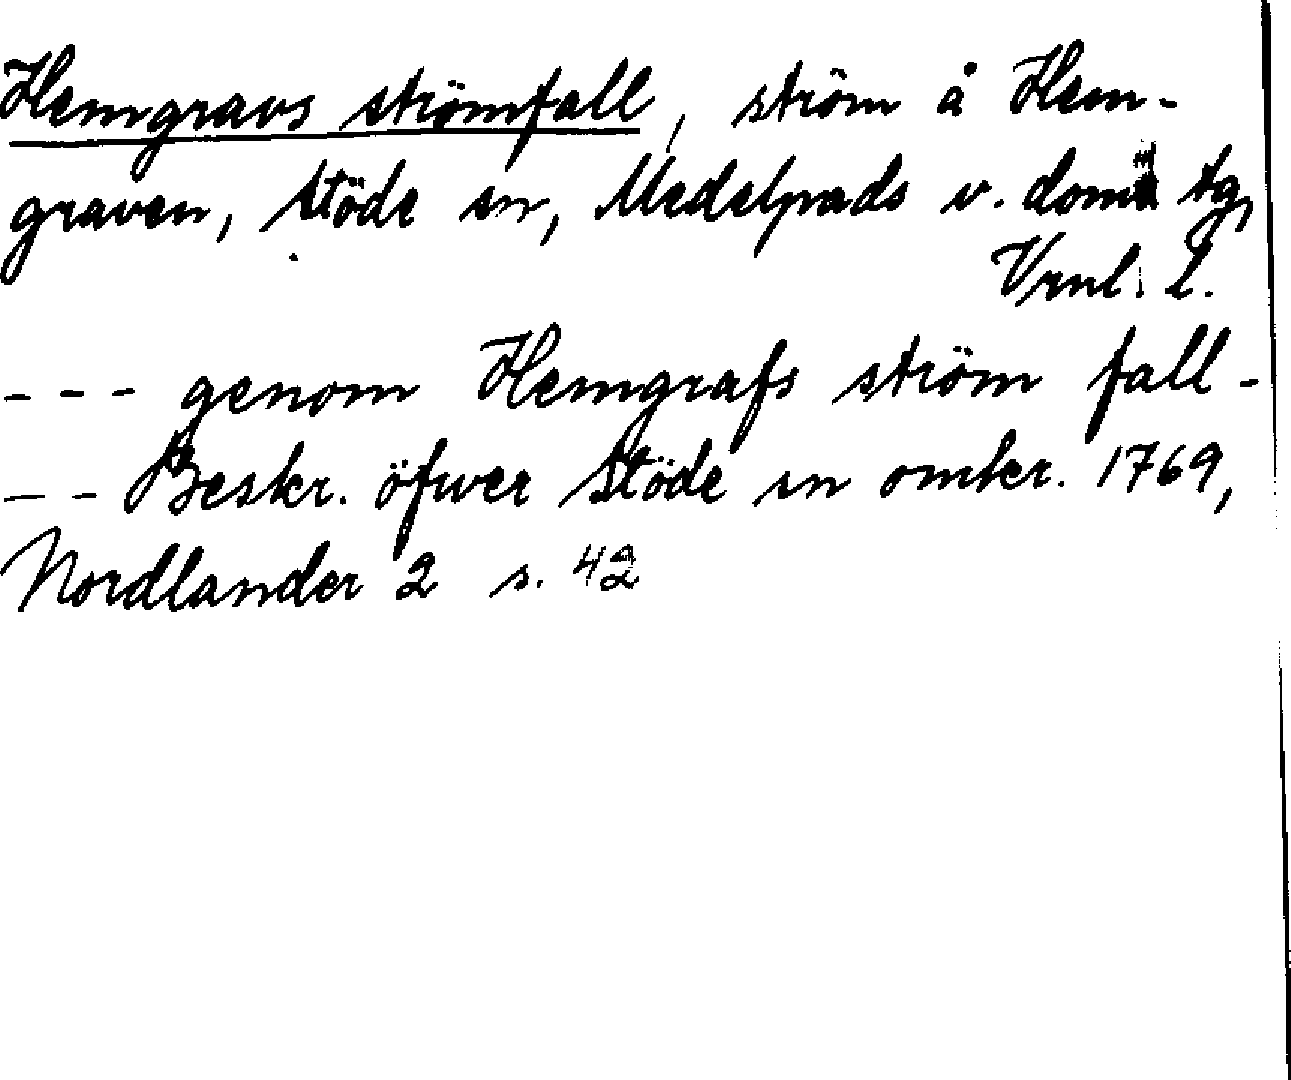 Hemgravs strömfall, ström å Hem-
graven, Stöde sn, Medelpads v. doms tg,
Vrnl. l.
- - - genom Hemgrafs ström fall -
- - Beskr. öfwer Stöde sn omkr. 1769,
Nordlander 2 s. 42